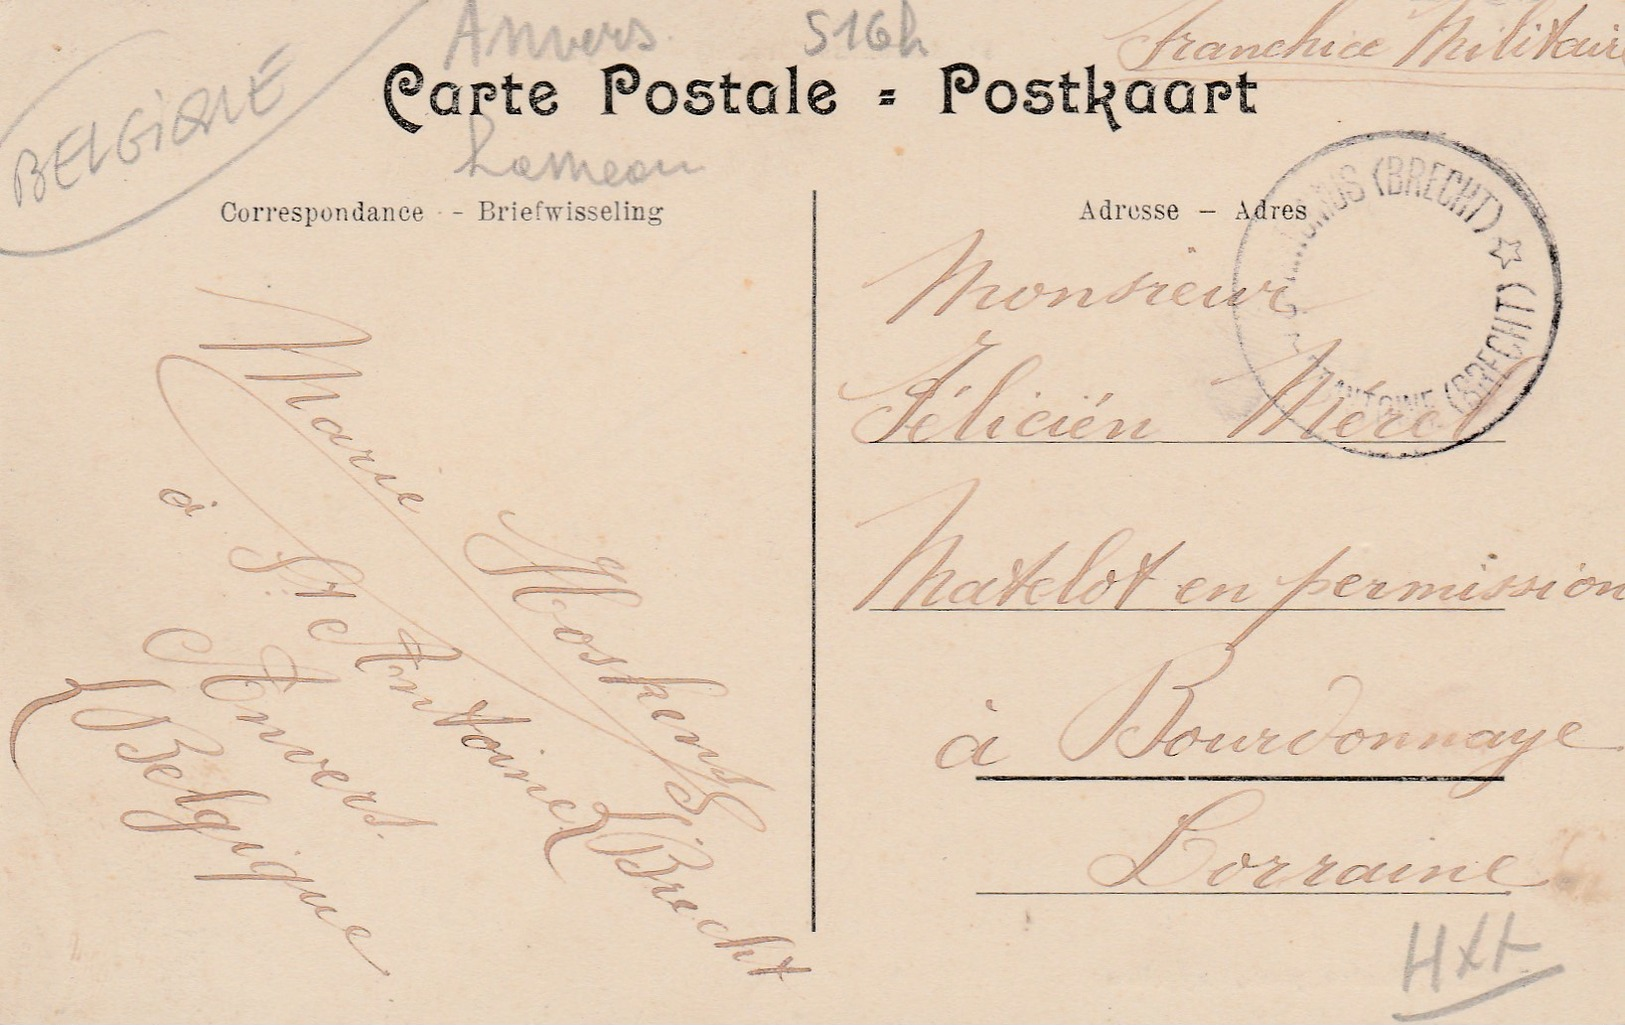 Anvers. 516h
Franchise Militaire
BELGIQUE
Carte Postale = Postkaart
Hameau
Correspondance - Briefwisseling
Adresse – Adres
(BRECHT) ☆
ANTOINE (BRECHT)
Monsieur
Félicién Mérel
Matelot en permission
à Bourdonnaye
Lorraine
Marie Hoskens
à St Antoine (Brecht
Anvers.
(Belgique